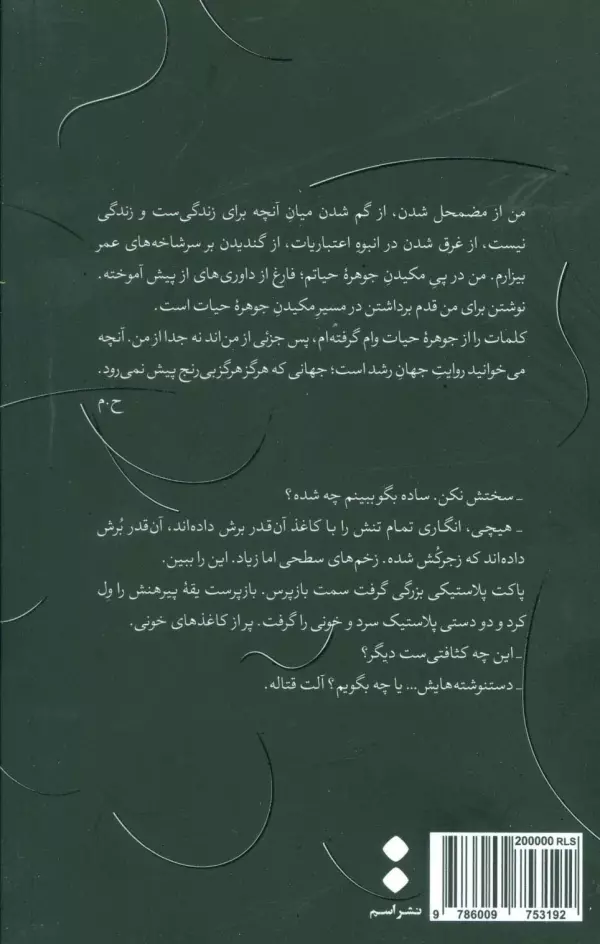 من از مضمحل شدن، از گم شدن میانِ آنچه برای زندگی‌ست و زندگی
نیست، از غرق شدن در انبوهِ اعتباریات، از گندیدن بر سرشاخه‌های عمر
بیزارم. من در پیِ مکیدنِ جوهرهٔ حیاتم؛ فارغ از داوری‌های از پیش آموخته.
نوشتن برای من قدم برداشتن در مسیرِ مکیدنِ جوهرهٔ حیات است.
کلمات را از جوهرهٔ حیات وام گرفته‌ام، پس جزئی از من‌اند نه جدا از من. آنچه
می‌خوانید روایتِ جهانِ رشد است؛ جهانی که هرگز هرگز بی‌رنج پیش نمی‌رود.
ح.م
ـ سختش نکن. ساده بگو ببینم چه شده؟
ـ هیچی، انگاری تمام تنش را با کاغذ آن‌قدر برش داده‌اند، آن‌قدر بُرش
داده‌اند که زجرکُش شده. زخم‌های سطحی اما زیاد. این را ببین.
پاکت پلاستیکی بزرگی گرفت سمت بازپرس. بازپرست یقهٔ پیرهنش را ول
کرد و دو دستی پلاستیک سرد و خونی را گرفت. پر از کاغذهای خونی.
ـ این چه کثافتی‌ست دیگر؟
ـ دستنوشته‌هایش... یا چه بگویم؟ آلت قتاله.
200000 RLS
نشر اسم
9 786009 753192